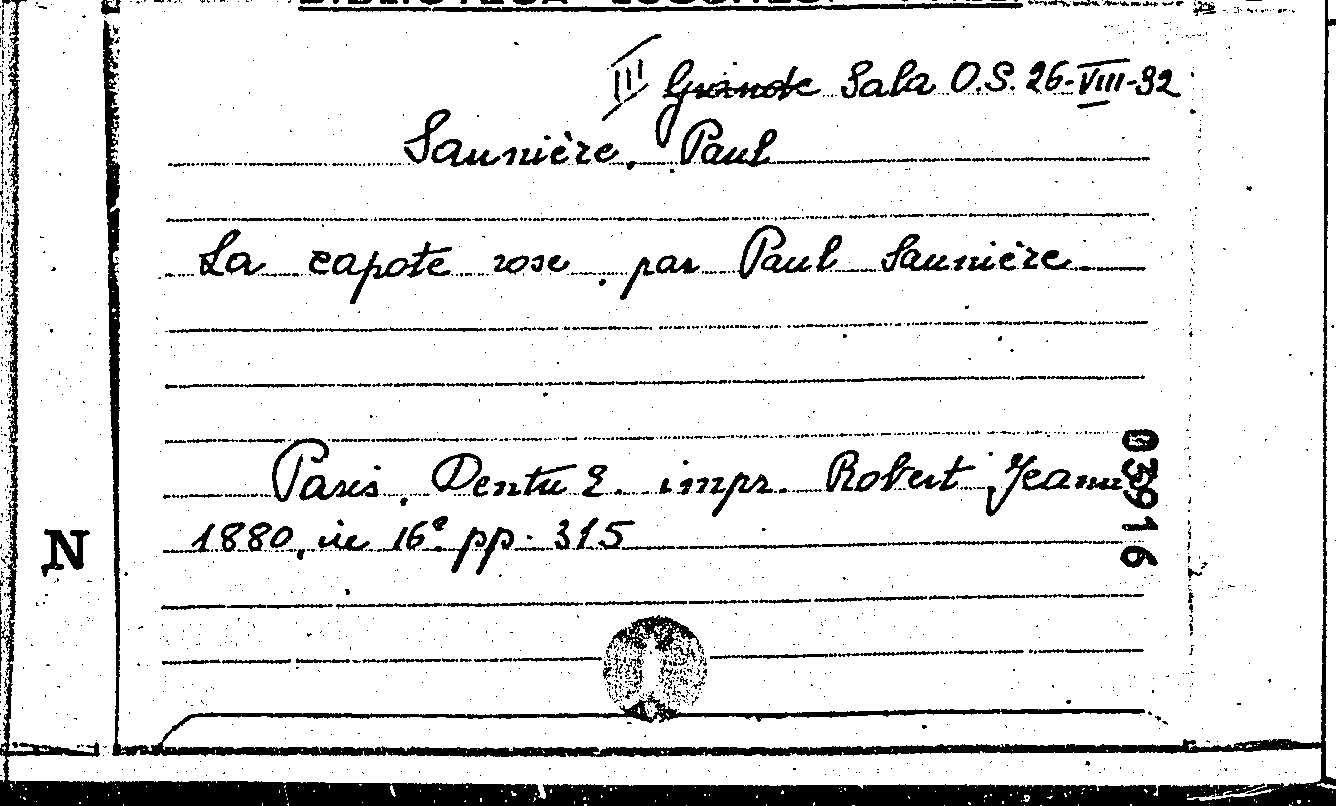 III Grande Sala O.S. 26-VIII-32
Saunière, Paul
La capote rose, par Paul Saunière
Paris, Dentu E. impr. Robert
1880, in 16º pp. 315
03916
N